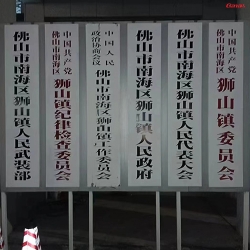 佛山市南海区狮山镇人民武装部
中国共产党
佛山市南海区
狮山镇纪律检查委员会
中国人民
政治协商会议
佛山市南海区狮山镇工作委员会
佛山市南海区狮山镇人民政府
佛山市南海区狮山镇人民代表大会
中国共产党
佛山市南海区
狮山镇委员会